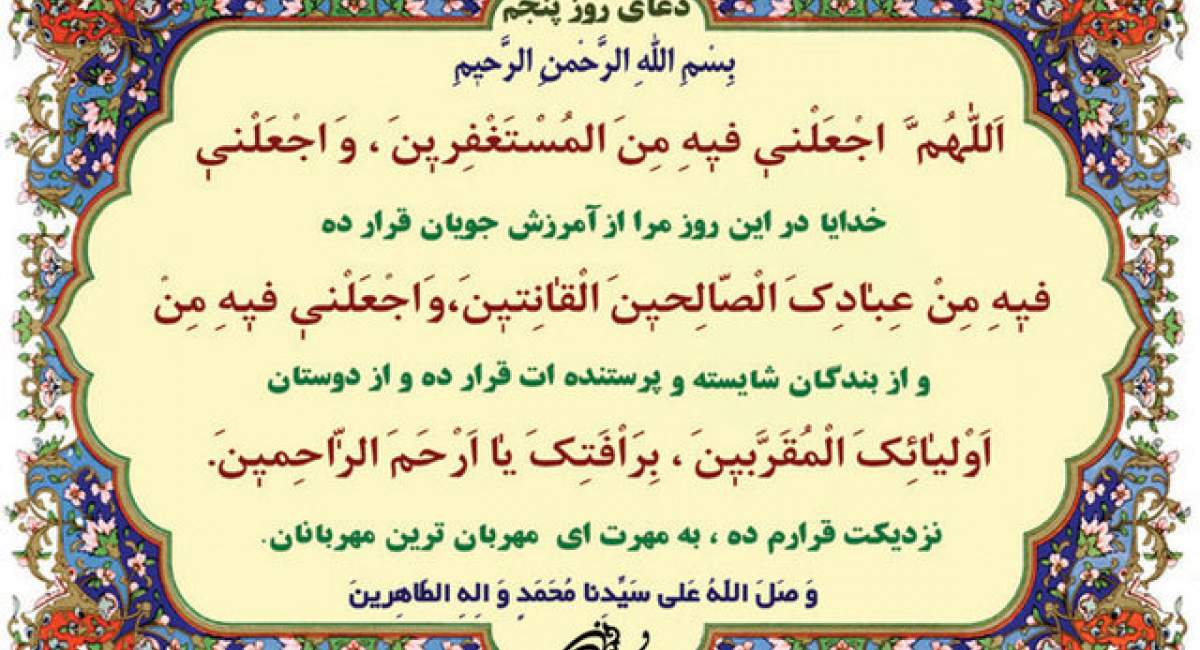 دعای روز پنجم
بِسْمِ اللهِ الرَّحْمنِ الرَّحیمِ
اَللّٰهُمَّ اجْعَلْنی فیهِ مِنَ المُسْتَغْفِرینَ ، وَ اجْعَلْنی
خدایا در این روز مرا از آمرزش جویان قرار ده
فیهِ مِنْ عِبٰادِکَ الْصّٰالِحینَ الْقٰانِتینَ،وَاجْعَلْنی فیهِ مِنْ
و از بندگان شایسته و پرستنده ات قرار ده و از دوستان
اَوْلیٰائِکَ الْمُقَرَّبینَ ، بِرَاْفَتِکَ یٰا اَرْحَمَ الرّٰاحِمینَ.
نزدیکت قرارم ده ، به مهرت ای مهربان ترین مهربانان.
وَ صَلَ اللهُ عَلی سَیِّدِنا مُحَمَدٍ وَ الِهِ الطٰاهِرینَ